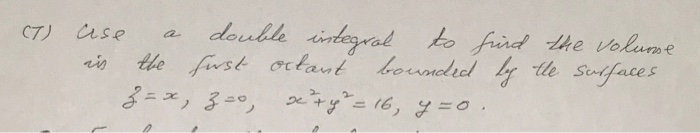 (7) Use a double integral to find the volume
in the first octant bounded by the surfaces
z = x, z = 0, x² + y² = 16, y = 0.